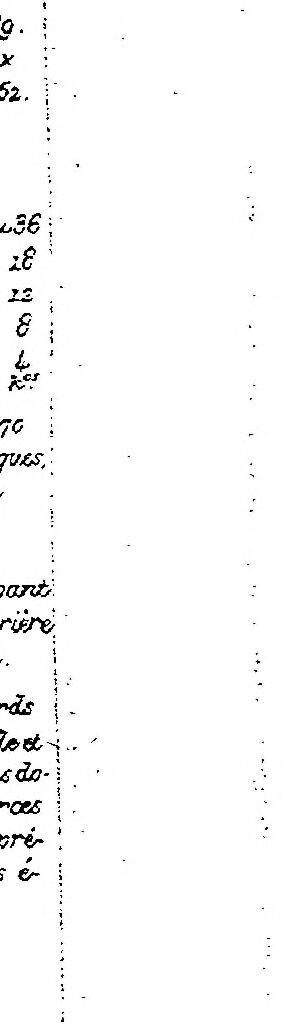 g.
x
52.
36
18
12
8
4
K^os
70
ques,
pant
rière
rds
le et
s do-
rces
pré-
s é-